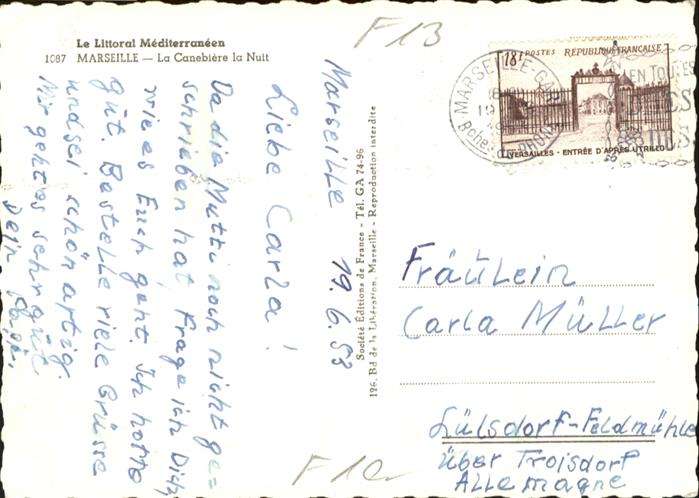 Le Littoral Méditerranéen
1087 MARSEILLE — La Canebière la Nuit
F13
18F POSTES RÉPUBLIQUE FRANÇAISE
VERSAILLES - ENTRÉE D'APRÈS UTRILLO
MARSEILLE-GARE
Marseille 19.6.53
Liebe Carla!
Da die Mutti noch nicht ge=
schrieben hat Frage ich Dich,
wie es Euch geht. Ich hoffe
gut. Bastelle viele Grüsse
und sei schön artig.
Mir geht es sehr gut
Dein
Société Editions de France - Tél. GA 74-96
126, Bd de la Libération, Marseille - Reproduction interdite
Fräulein
Carla Müller
Lülsdorf-Feldmühle
über Troisdorf
Allemagne